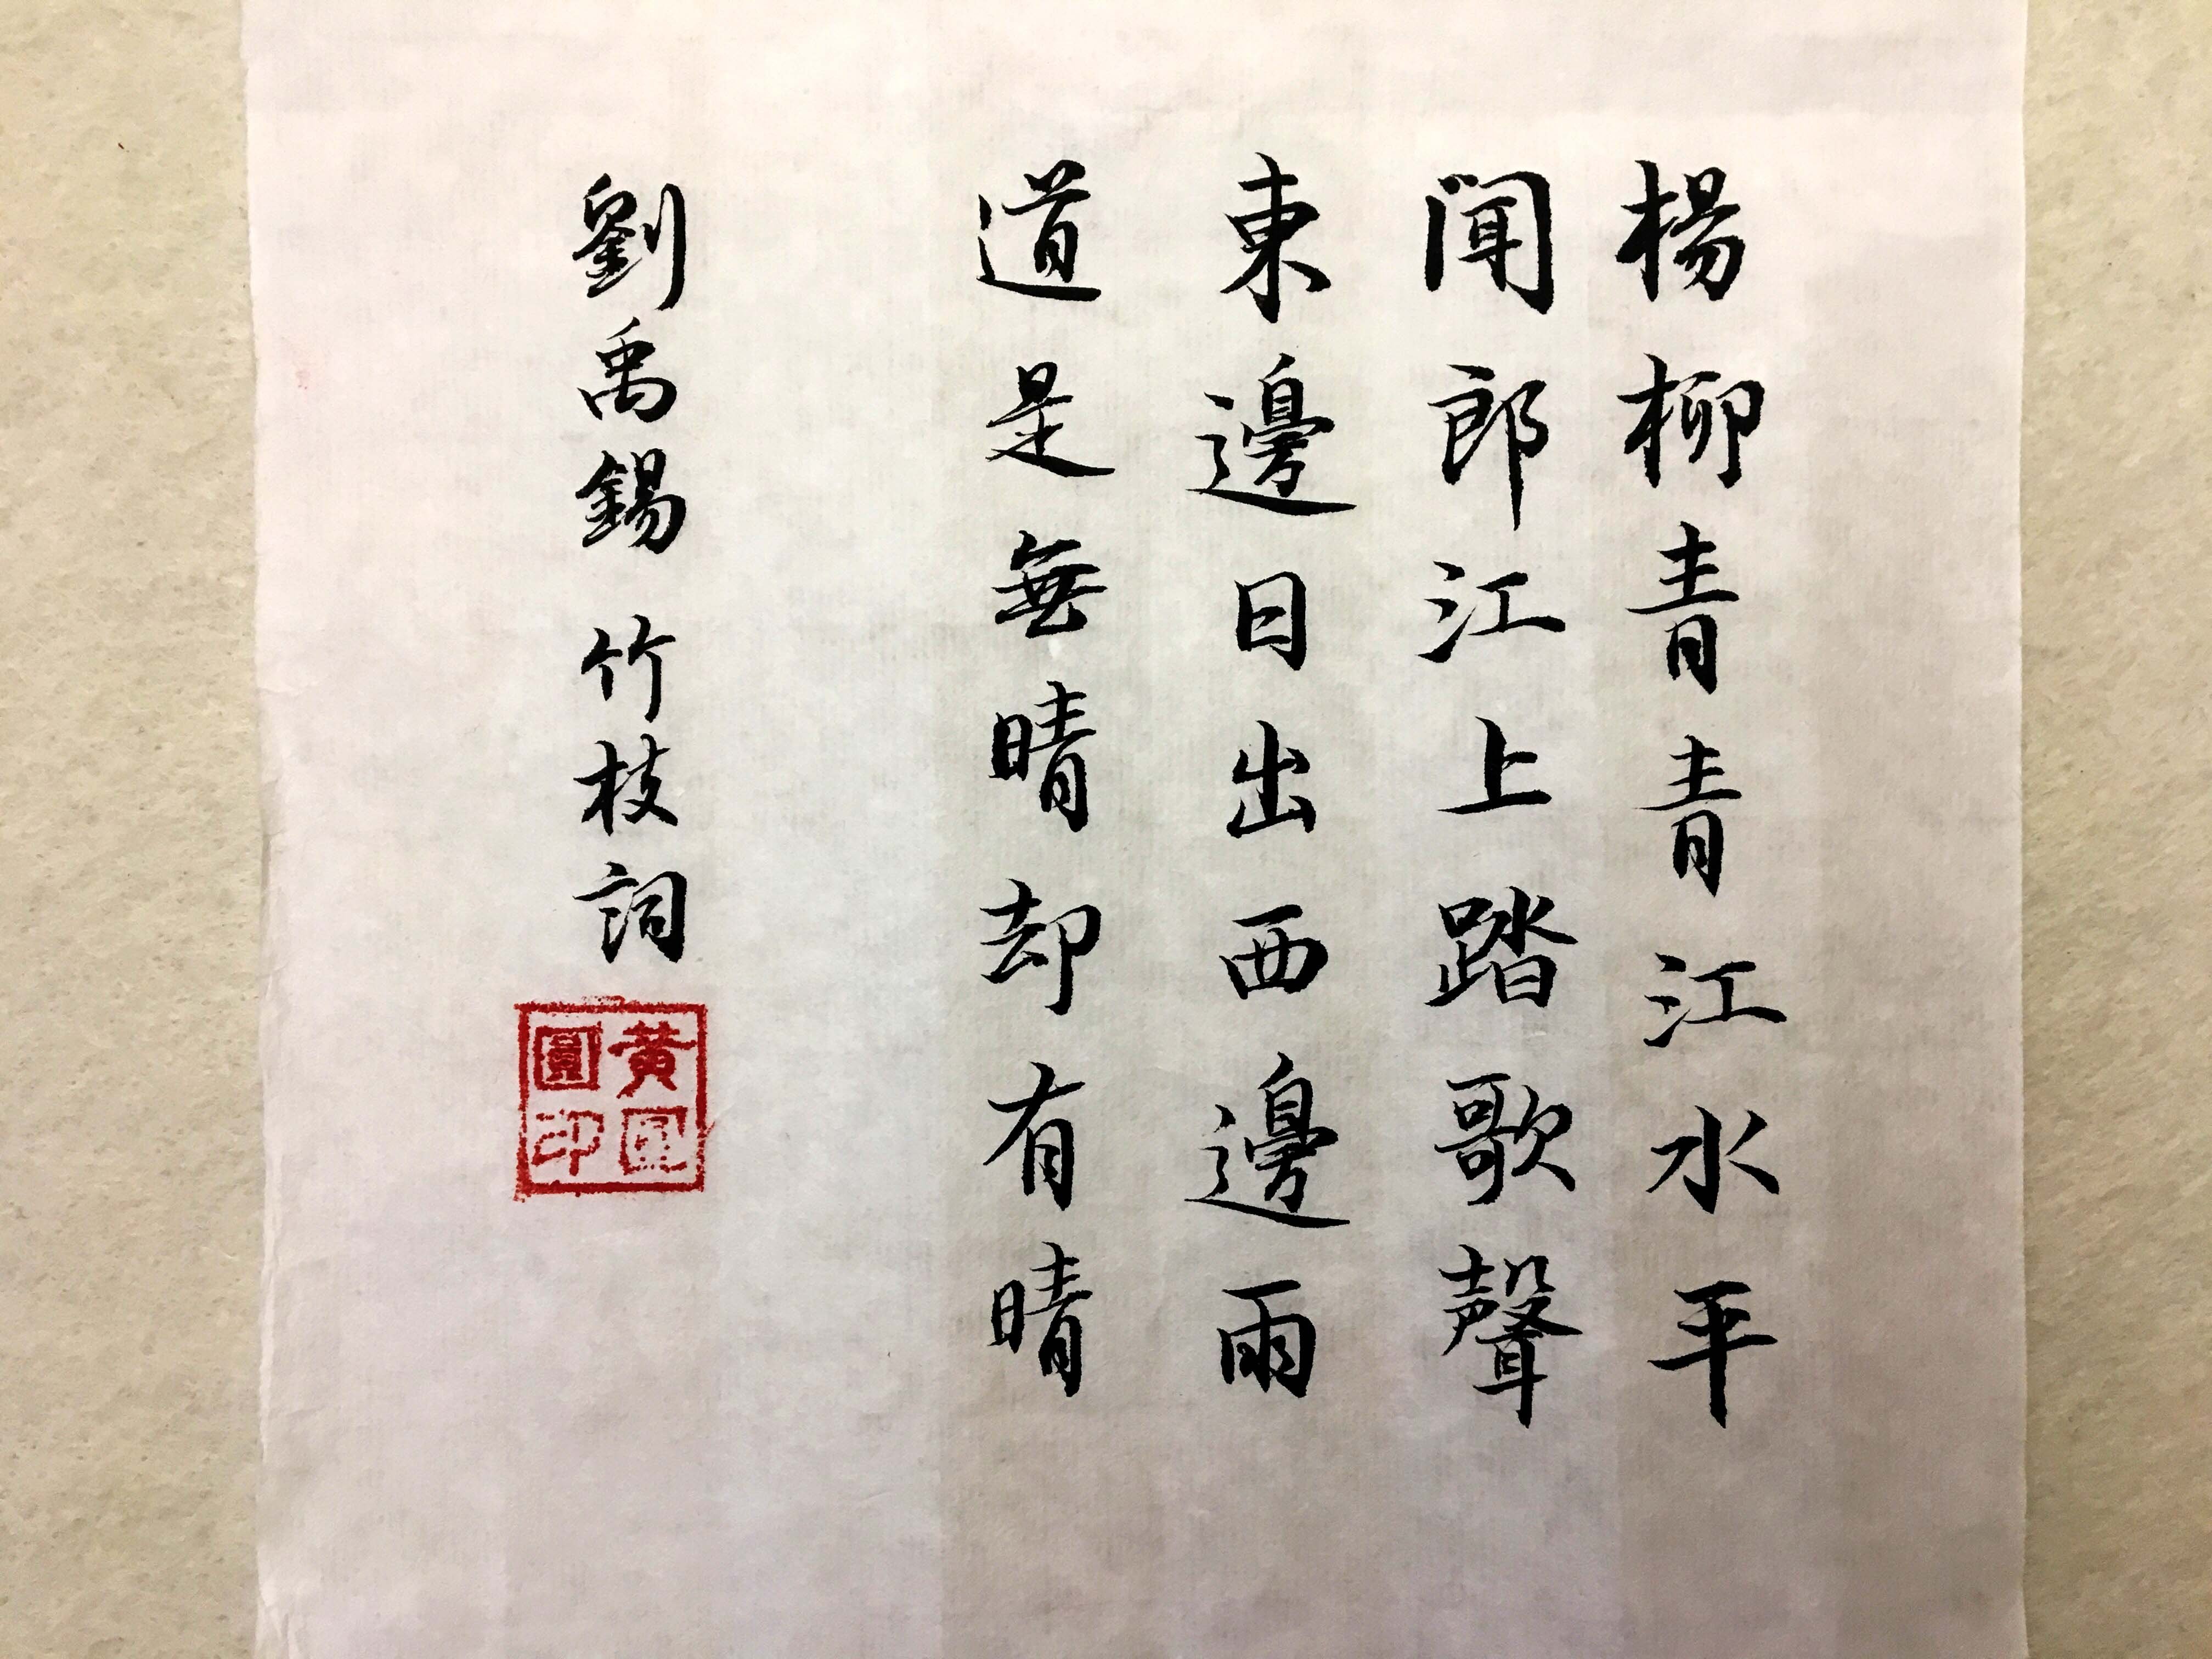 楊柳青青江水平
聞郎江上踏歌聲
東邊日出西邊雨
道是無晴却有晴
劉禹錫 竹枝詞
黃圓圓印